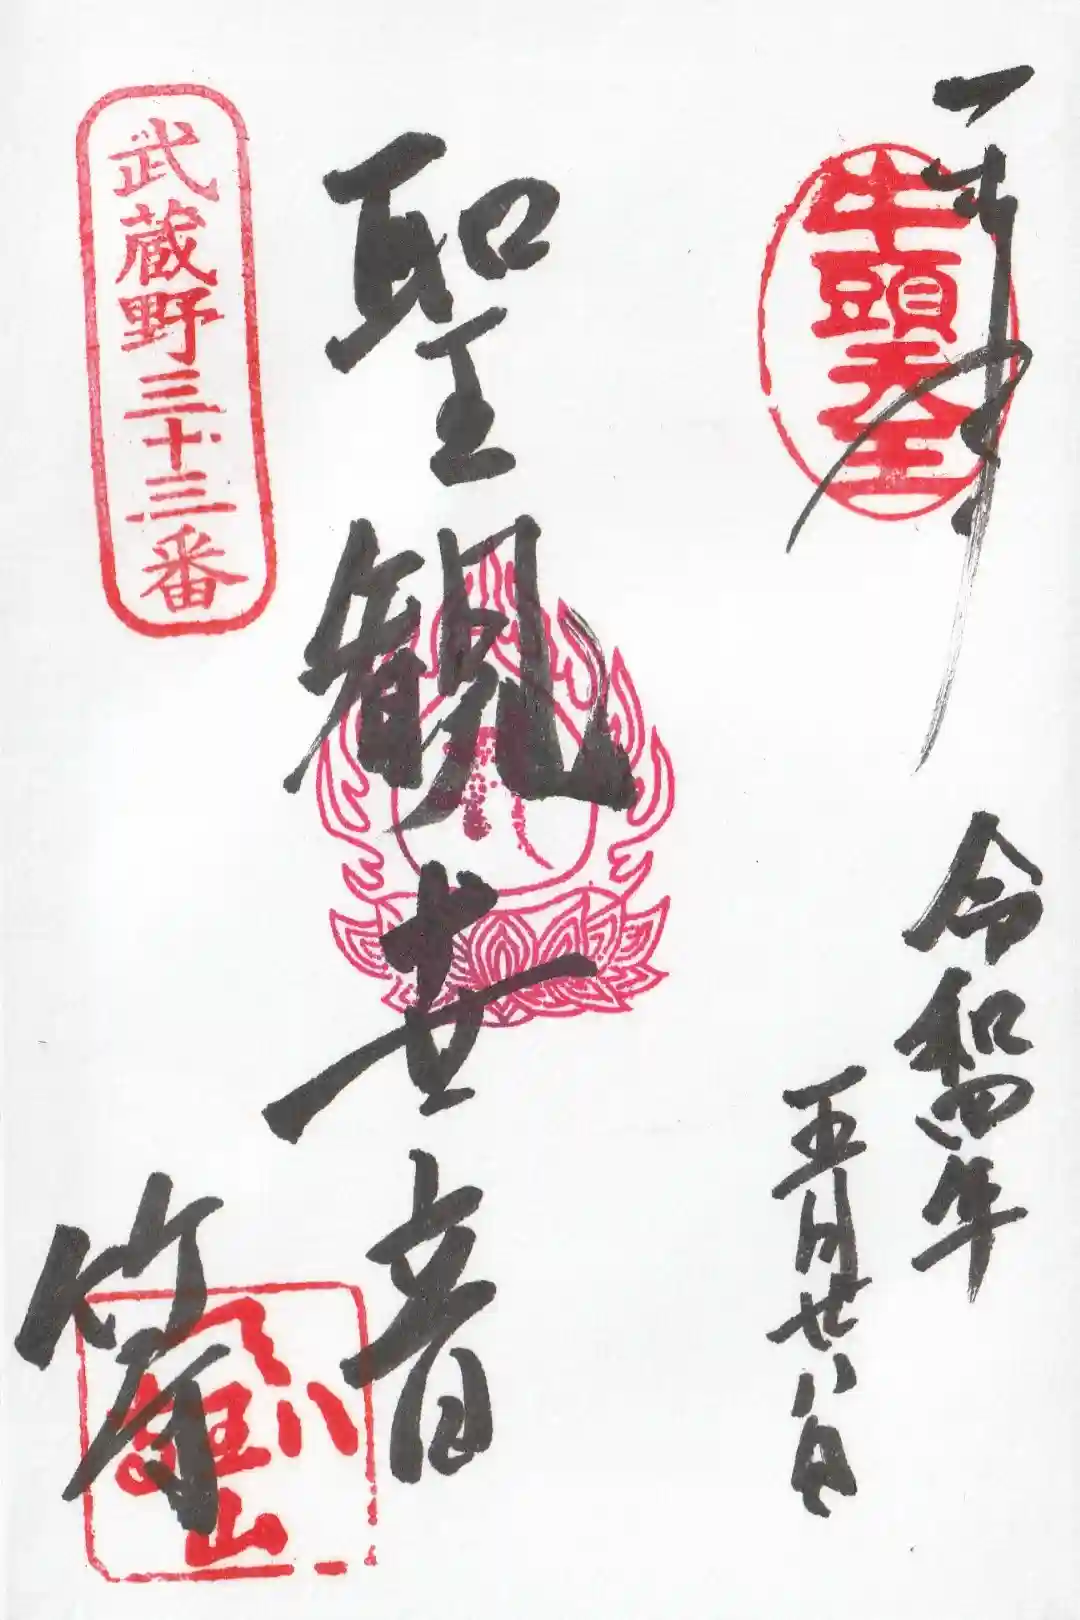 奉拝
牛頭天王
令和四年
五月廿八日
聖観世音
武蔵野三十三番
竹寺
八王山